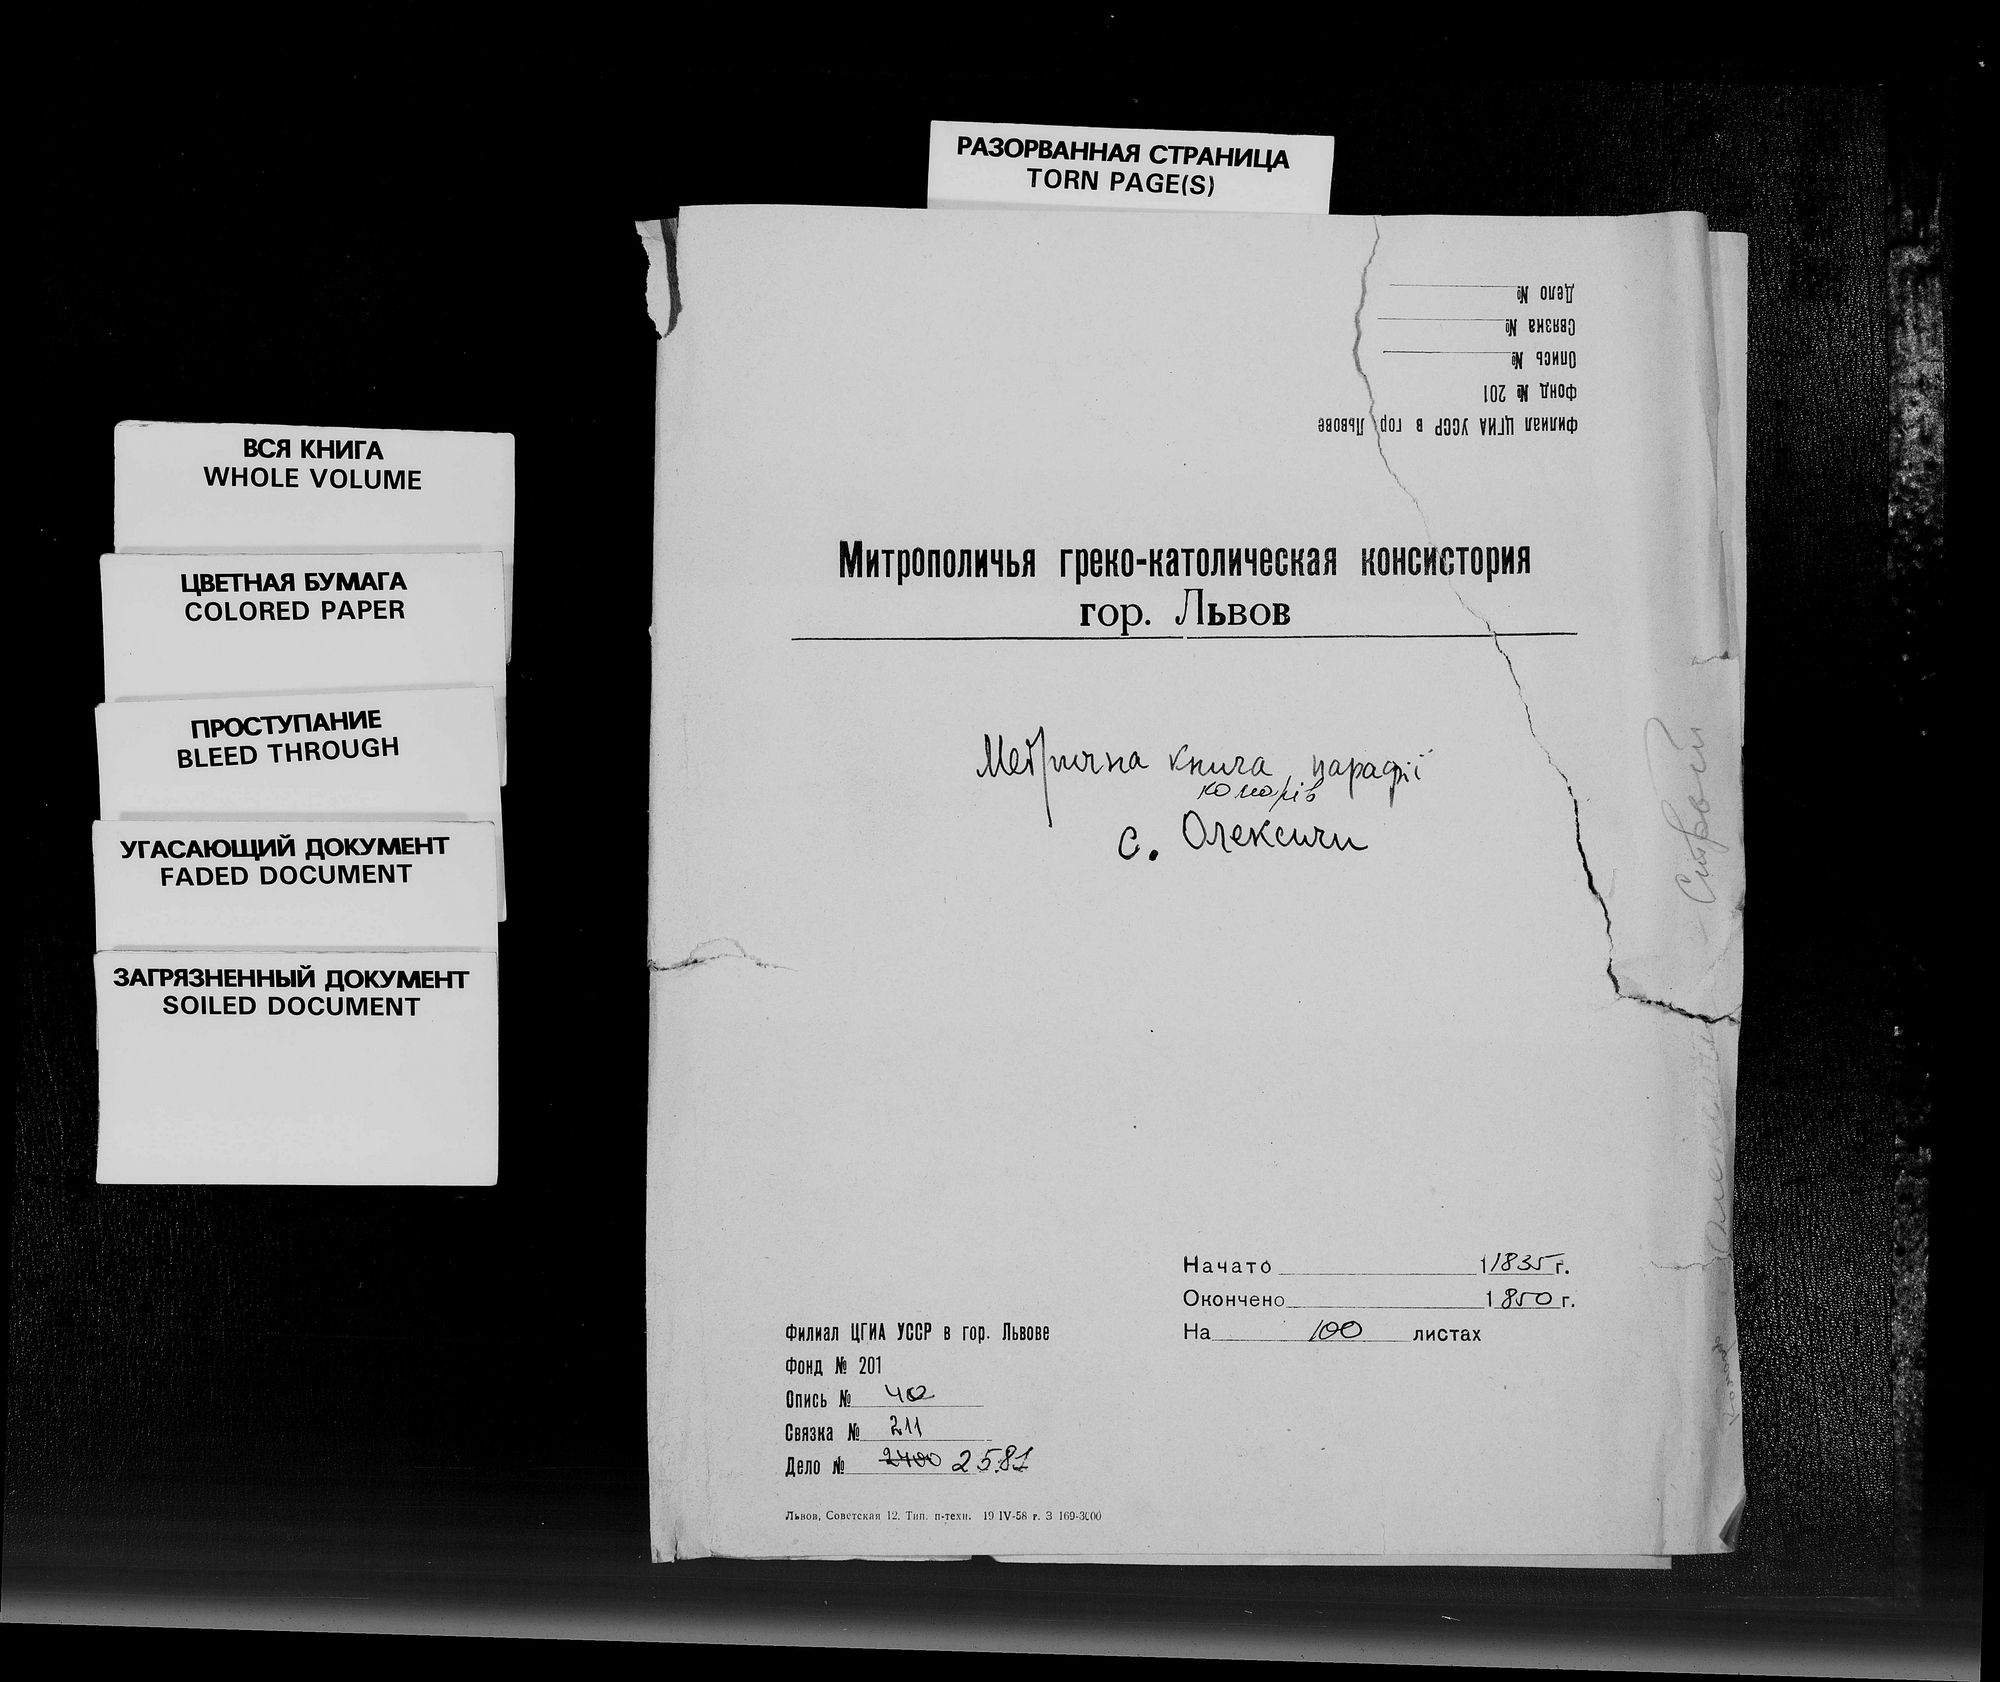 РАЗОРВАННАЯ СТРАНИЦА
TORN PAGE(S)
ВСЯ КНИГА
WHOLE VOLUME
ЦВЕТНАЯ БУМАГА
COLORED PAPER
ПРОСТУПАНИЕ
BLEED THROUGH
УГАСАЮЩИЙ ДОКУМЕНТ
FADED DOCUMENT
ЗАГРЯЗНЕННЫЙ ДОКУМЕНТ
SOILED DOCUMENT
Филиал ЦГИА УССР в гор Львове
Фонд № 201
Опись №
Связка №
Дело №
Митрополичья греко-католическая консистория
гор. Львов
Метрична книга парафії
с. Олексичи
Строй
Начато 11835 г.
Окончено 1850 г.
На 100 листах
Филиал ЦГИА УССР в гор. Львове
Фонд № 201
Опись № 4а
Связка № 211
Дело № 2400 2581
Львов, Советская 12. Тип. п-техн. 19 IV-58 г. З 169-3000